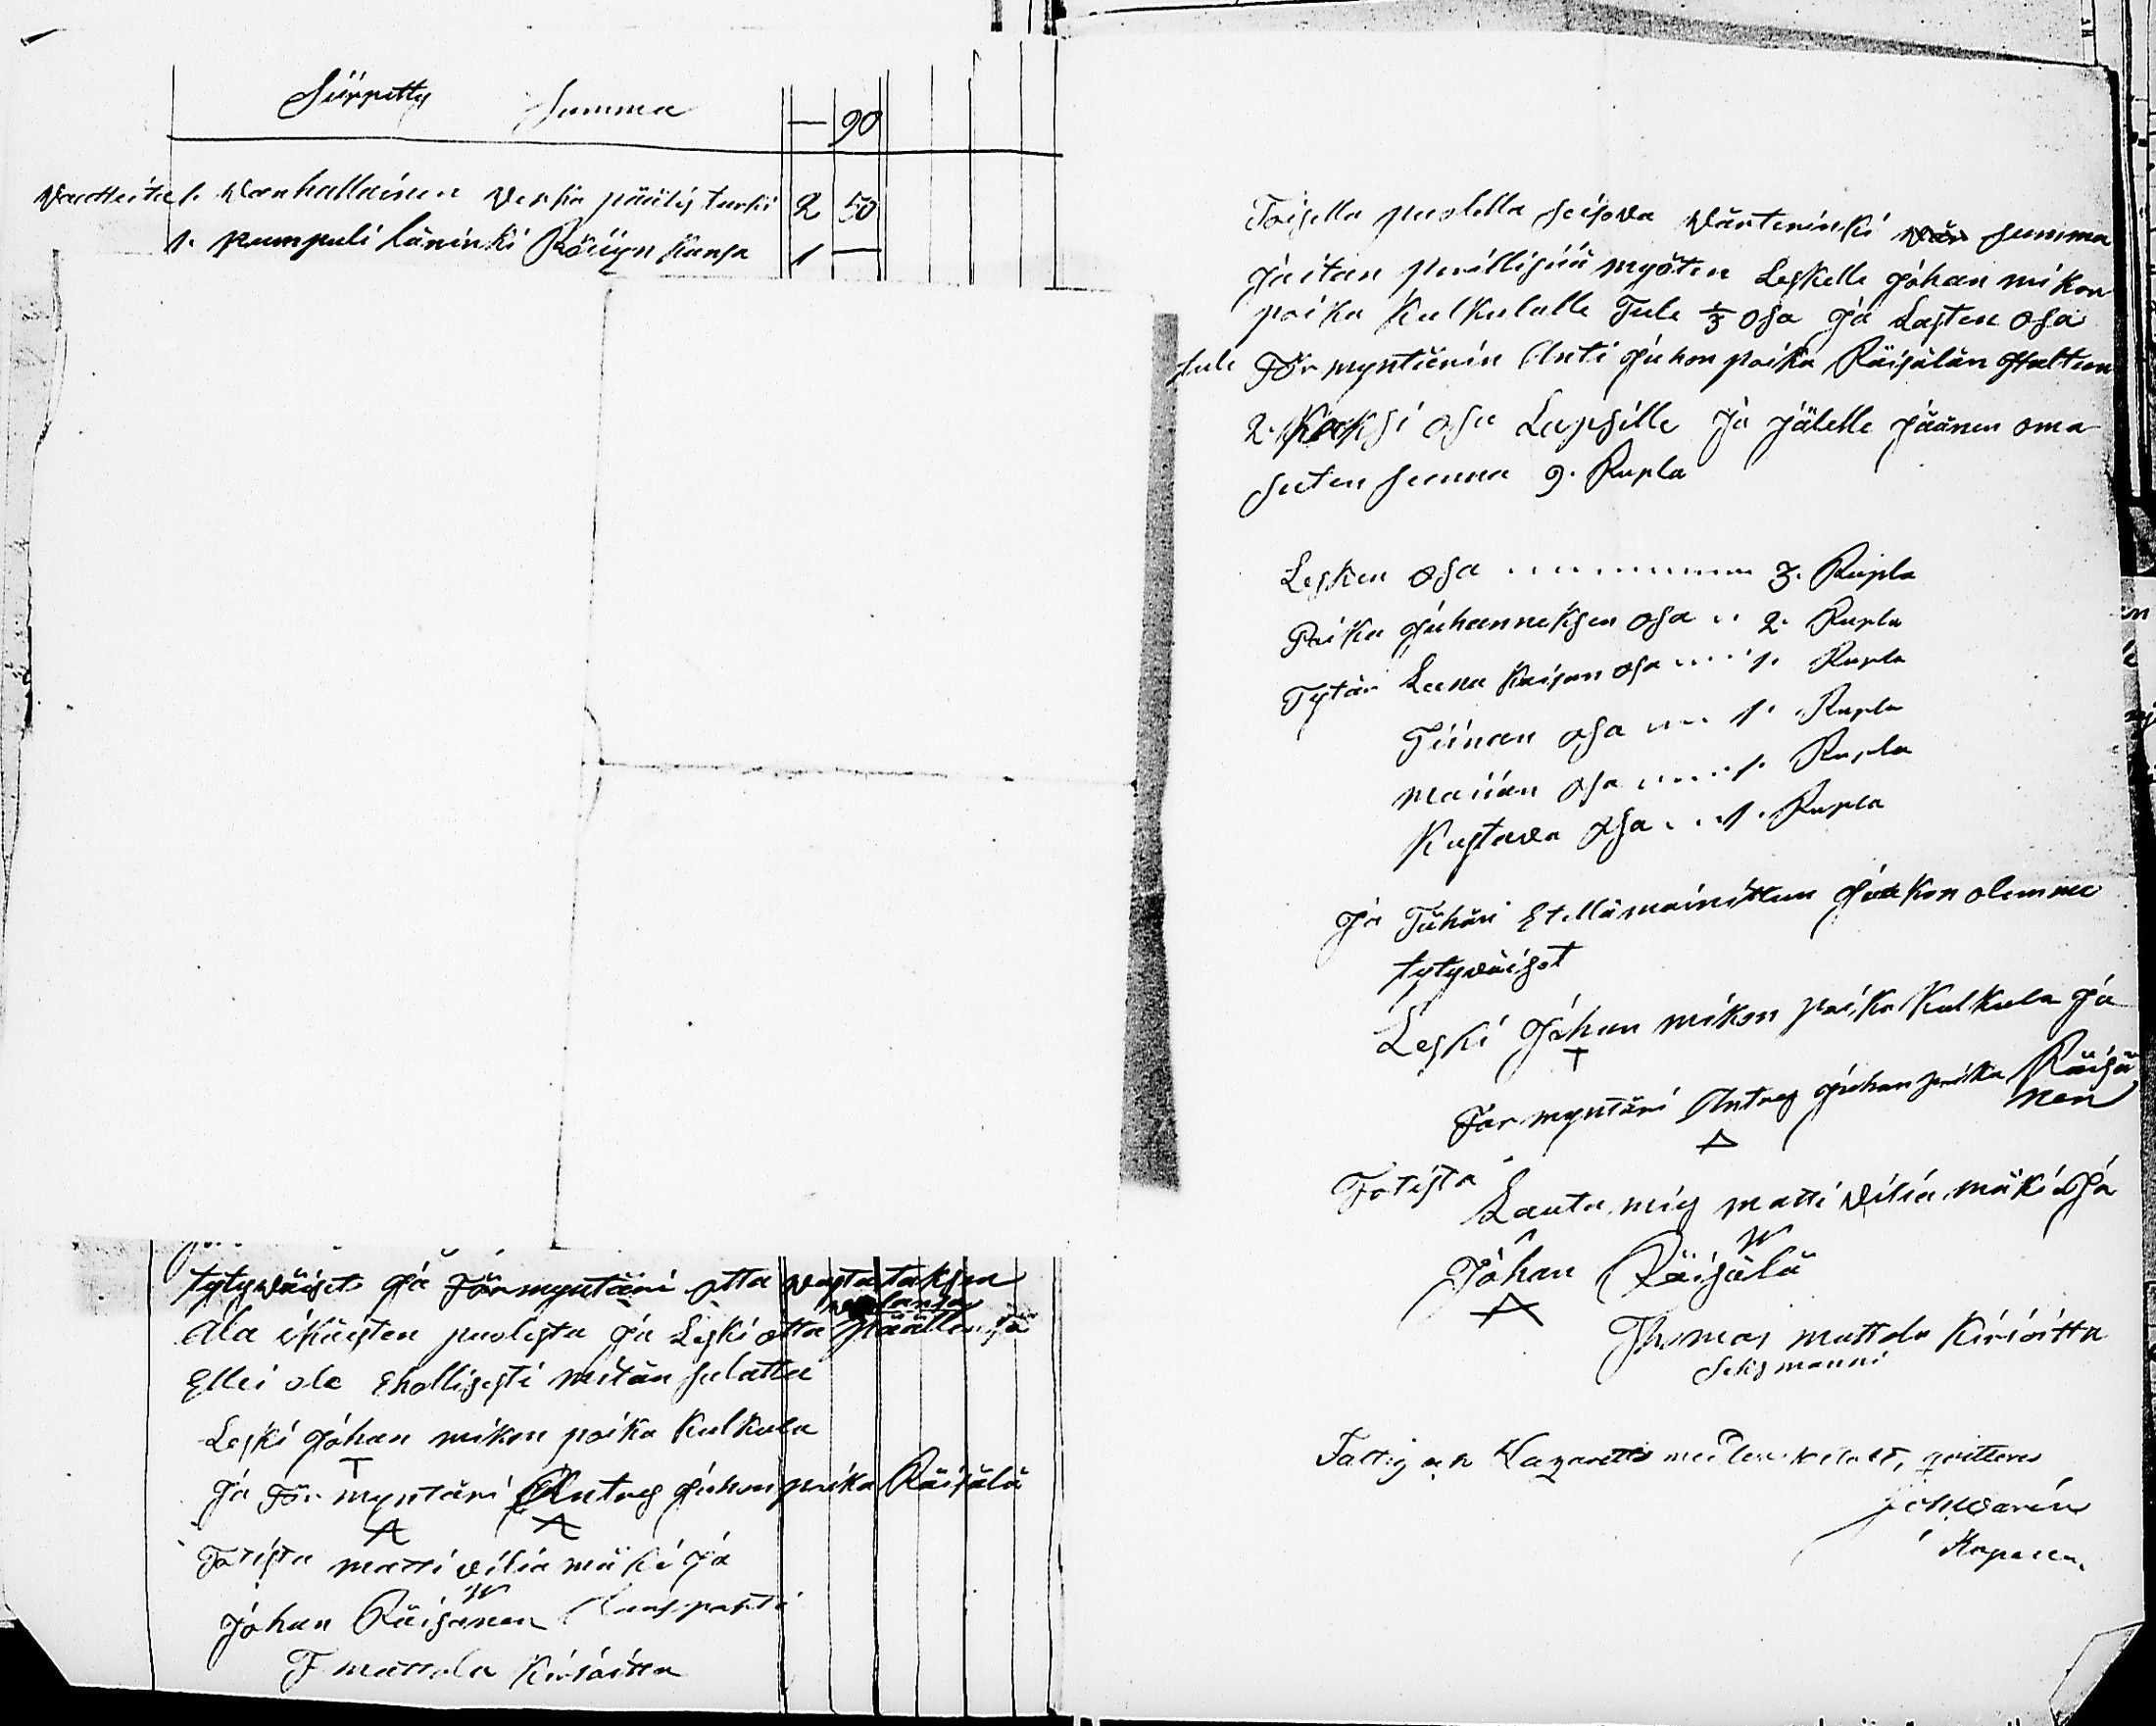 Siirretty Summa — 90
Vaatteita 1. Vanhallainen Verka päälis turki 2 50
1. pumpuli läninki Röijyn kansa 1 —
tytyväiset Ja Förmyntäri otta vastataksen
Ala ikäisten puolesta Ja Leski otta päällensä
Ellei ole Ehollisesti mitän salattu
Leski Johan mikon poika Kulkula
T
Ja Förmyntäri Antreg Juhon poika Räisälä
Totista matti vilia mäki Ja
Johan Räisänen
T mattola Kirioitta
Toisella puolella seisova Värterinki summa
Jaitan perillisiä myöten Leskelle Johan mikon
poika Kulkulalle Tule 1/3 osa Ja Lasten osa
tule Förmyntärin Anti Juhon poika Räisälän Haltun
2. Kaksi osa Lapsille Ja Jälelle Jäänen oma
suten summa 9. Rupla
Lesken osa 3. Rupla
Poika Juhanneksen osa 2. Rupla
Tytär Leena Kaisan osa 1. Rupla
Tiinan osa 1. Rupla
Maiian osa 1. Rupla
Kustava osa 1. Rupla
Ja Tähän Etellämainittun Jaakon olemme
tytyväiset
Leski Johan mikon poika Kulkula Ja
T
Förmyntäri Antreg Juhon poika Räisä
nen
Totista
Lauta mis matti vilia mäki Ja
Johan Räisälä
Thomas mattola Kirioitta
Seksmanni
Fattig och Lazaretts medlen qvitteras